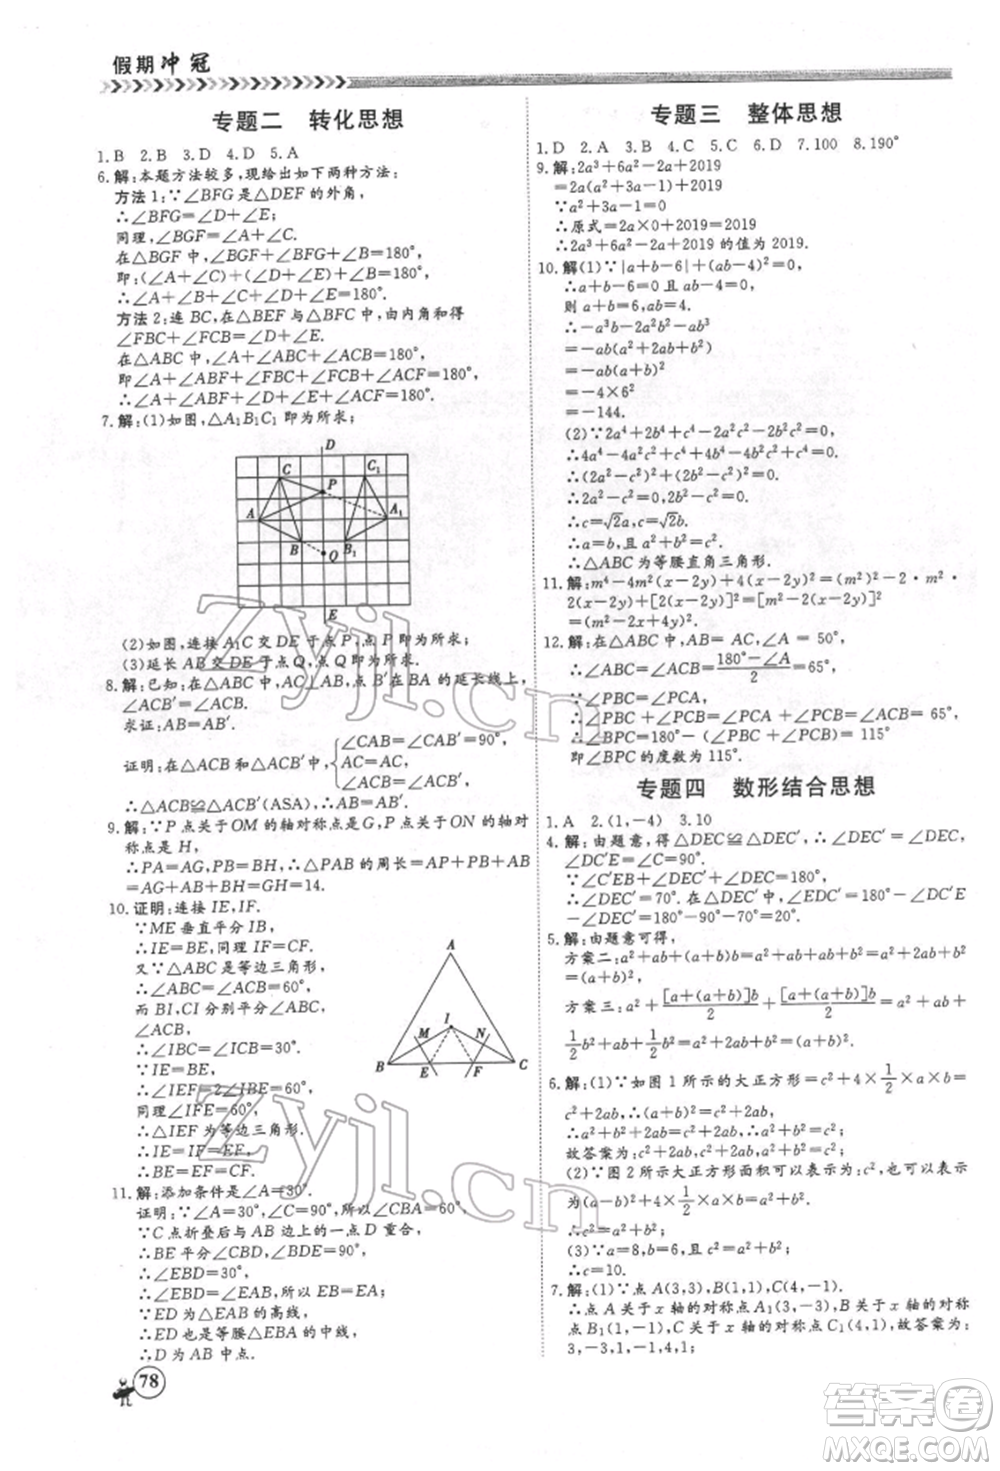 假期冲冠
专题二 转化思想
1.B 2.B 3.D 4.D 5.A
6.解:本题方法较多,现给出如下两种方法:
方法1:∵∠BFG是△DEF的外角,
∴∠BFG=∠D+∠E;
同理,∠BGF=∠A+∠C.
在△BGF中,∠BFG+∠BGF+∠B=180°,
即:(∠A+∠C)+(∠D+∠E)+∠B=180°,
∴∠A+∠B+∠C+∠D+∠E=180°.
方法2:连BC,在△BEF与△BCF中,由内角和得
∠FBC+∠FCB=∠D+∠E.
在△ABC中,∠A+∠ABC+∠ACB=180°,
即∠A+∠ABF+∠ACF+∠FBC+∠FCB=180°,
∴∠A+∠ABF+∠ACF+∠D+∠E=180°.
7.解:(1)如图,△A₁B₁C₁即为所求;
D
C C₁
P
A A₁
B B₁ Q
E
(2)如图,连接A₁C交DE于点P,点P即为所求;
(3)延长AB交DE于点Q,点Q即为所求.
8.解:已知:在△ABC中,∠CAB=90°,点B′在BA的延长线上,
∠ACB′=∠ACB.
求证,AB=AB′.
证明:在△ACB和△ACB′中,{∠CAB=∠CAB′=90°,
AC=AC,
∠ACB=∠ACB′,
∴△ACB≌△ACB′(ASA),∴AB=AB′.
9.解:∵P点关于OM的轴对称点是G,P点关于ON的轴对
称点是H,
∴PA=AG,PB=BH,∴△PAB的周长=AP+PB+AB=
AG+AB+BH=GH=14.
10.证明:连接IE,IF.
∵ME垂直平分IB,
∴IE=BE,同理IF=CF.
又∵△ABC是等边三角形,
∴∠ABC=∠ACB=60°,
而BI,CI分别平分∠ABC,
∠ACB,
∴∠IBC=∠ICB=30°.
∵IE=BE,
∴∠IEF=2∠IBE=60°,
同理∠IFE=60°,
∴△IEF为等边三角形.
∴IE=IF=EF,
∴BE=EF=CF.
A
M I N
B E F C
11.解:添加条件是∠A=30°.
证明:∵∠A=30°,∠C=90°,所以∠CBA=60°,
∵C点折叠后与AB边上的一点D重合,
∴BE平分∠CBD,∠BDE=90°,
∴∠EBD=30°,
∴∠EBD=∠EAB,所以EB=EA;
∵ED为△EAB的高线,
∴ED也是等腰△EBA的中线,
∴D为AB中点.
78
专题三 整体思想
1.D 2.B 3.B 4.C 5.C 6.D 7.100 8.190°
9.解:2a³+6a²-2a+2019
=2a(a²+3a-1)+2019
∵a²+3a-1=0
∴原式=2a×0+2019=2019
∴2a³+6a²-2a+2019的值为2019.
10.解(1)∵|a+b-6|+(ab-4)²=0,
∴a+b-6=0,ab-4=0,
则a+b=6,ab=4.
∴-a³b-2a²b²-ab³
=-ab(a²+2ab+b²)
=-ab(a+b)²
=-4×6²
=-144.
(2)∵2a⁴+2b⁴+c⁴=2a²c²+2b²c²,
∴4a⁴-4a²c²+c⁴+4b⁴-4b²c²+c⁴=0.
∴(2a²-c²)²+(2b²-c²)²=0.
∴2a²-c²=0,2b²-c²=0.
∴c=√2a,c=√2b.
∴a=b,且a²+b²=c².
∴△ABC为等腰直角三角形.
11.解:m⁴-4m²(x-2y)+4(x-2y)²=(m²)²-2·m²·
2(x-2y)+[2(x-2y)]²=[m²-2(x-2y)]²
=(m²-2x+4y)².
12.解:在△ABC中,AB=AC,∠A=50°,
∴∠ABC=∠ACB=(180°-∠A)/2=65°,
∵∠PBC=∠PCA,
∴∠PBC+∠PCB=∠PCA+∠PCB=∠ACB=65°,
∴∠BPC=180°-(∠PBC+∠PCB)=115°,
即∠BPC的度数为115°.
专题四 数形结合思想
1.A 2.(1,-4) 3.10
4.解:由题意,得△DEC≌△DEC′,∴∠DEC′=∠DEC,
∠DC′E=∠C=90°.
∵∠C′EB+∠DEC′+∠DEC=180°,
∴∠DEC′=70°.在△DEC′中,∠EDC′=180°-∠DC′E
-∠DEC′=180°-90°-70°=20°.
5.解:由题意可得,
方案二:a²+ab+b(a+b)=a²+ab+ab+b²=a²+2ab+b²
=(a+b)²,
方案三:a²+[a+(a+b)]b/2+[a+(a+b)]b/2=a²+ab+
1/2b²+ab+1/2b²=a²+2ab+b²=(a+b)².
6.解:(1)∵如图1所示的大正方形=c²+4×1/2ab=(a+b)²,
c²+2ab,
∴a²+b²+2ab=c²+2ab,∴a²+b²=c²;
故答案为:c²+2ab,a²+b²=c²;
(2)∵图2所示大正方形面积可以表示为:c²,也可以表示
为:(b-a)²+4×1/2ab,
∴c²=(b-a)²+2ab=a²+b²;
(3)∵a=8,b=6,且c²=a²+b²;
∴c=10.
7.解:(1)∵点A(3,3),B(1,1),C(4,-1).
∴点A关于x轴的对称点A₁(3,-3),B关于x轴的对称
点B₁(1,-1),C关于x轴的对称点C₁(4,1),故答案为:
3,-3,1,-1,4,1;
zyjl.cn
zyjl.cn
答案圈
MXQE.COM